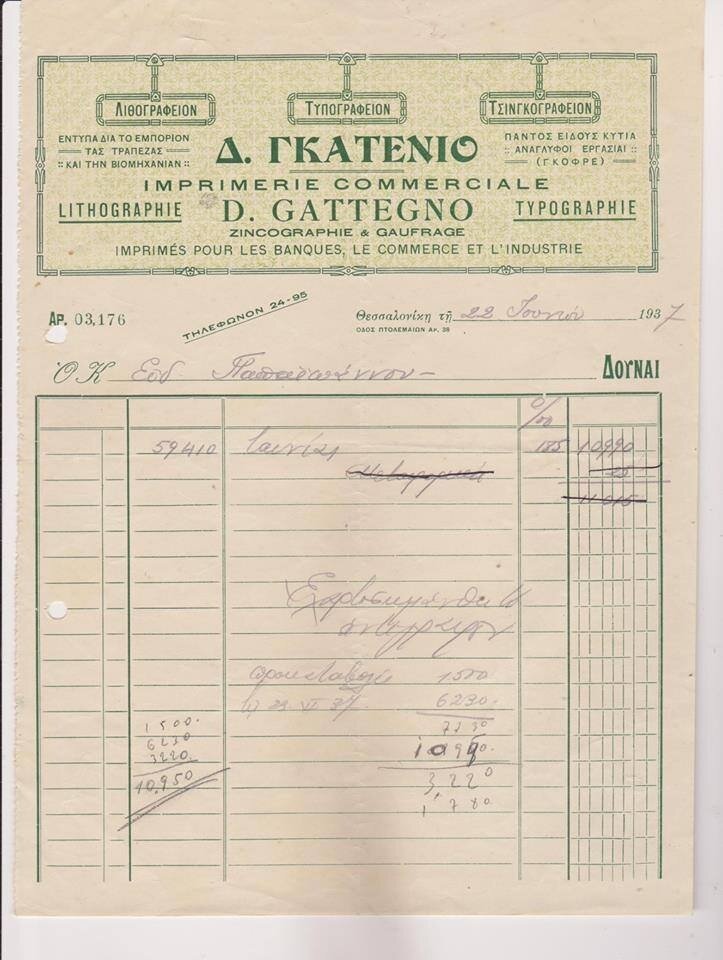 ΛΙΘΟΓΡΑΦΕΙΟΝ ΤΥΠΟΓΡΑΦΕΙΟΝ ΤΣΙΝΓΚΟΓΡΑΦΕΙΟΝ
ΕΝΤΥΠΑ ΔΙΑ ΤΟ ΕΜΠΟΡΙΟΝ
ΤΑΣ ΤΡΑΠΕΖΑΣ
ΚΑΙ ΤΗΝ ΒΙΟΜΗΧΑΝΙΑΝ
Δ. ΓΚΑΤΕΝΙΟ
ΠΑΝΤΟΣ ΕΙΔΟΥΣ ΚΥΤΙΑ
ΑΝΑΓΛΥΦΟΙ ΕΡΓΑΣΙΑΙ
(ΓΚΟΦΡΕ)
IMPRIMERIE COMMERCIALE
LITHOGRAPHIE D. GATTEGNO TYPOGRAPHIE
ZINCOGRAPHIE & GAUFRAGE
IMPRIMÉS POUR LES BANQUES, LE COMMERCE ET L'INDUSTRIE
ΑΡ. 03,176
ΤΗΛΕΦΩΝΟΝ 24-95
Θεσσαλονίκη τῇ 22 Ἰουνίου 1937
ΟΔΟΣ ΠΤΟΛΕΜΑΙΩΝ ΑΡ. 38
Ὁ Κ Παπαϊωάννου ΔΟΥΝΑΙ
0/00
59410 ταινίαι 185 10990
Μεταφορικά 25
11015
προκαταβολή 1500
23 VI 37. 6230
7730
10990.
3,220
1500.
6230
3220.
10.950
1,780.